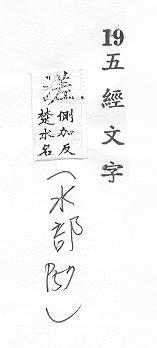 19五經文字
側加反
楚水名
(水部P57)